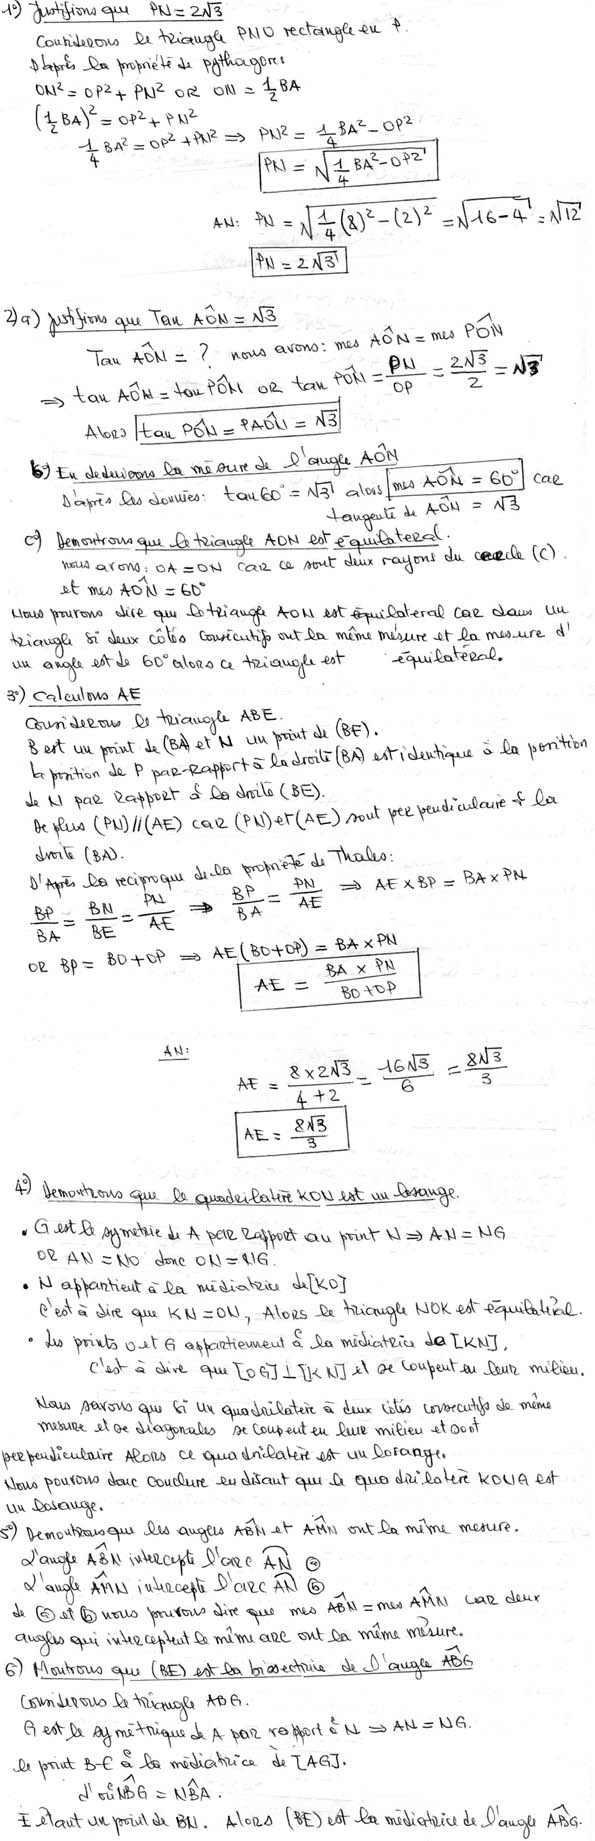 1°) Justifions que PN = 2√3
Considerons le triangle PNO rectangle en P.
D'après la propriété de pythagore:
ON² = OP² + PN² OR ON = 1/2 BA
(1/2 BA)² = OP² + PN²
1/4 BA² = OP² + PN² ⇒ PN² = 1/4 BA² - OP²
PN = √(1/4 BA² - OP²)
AN: PN = √(1/4 (8)² - (2)²) = √(16-4) = √12
PN = 2√3
2) a) Justifions que Tan AÔN = √3
Tan AÔN = ? nous avons: mes AÔN = mes PÔN
⇒ tan AÔN = tan PÔN OR tan PÔN = PN/OP = 2√3/2 = √3
Alors tan PÔN = PAÔN = √3
b) En deduisons la mésure de l'angle AÔN
D'après les données: tan 60° = √3 alors mes AÔN = 60° car
tangente de AÔN = √3
c) Demontrons que le triangle AON est équilateral.
nous avons: OA = ON car ce sont deux rayons du cercle (C).
et mes AÔN = 60°
Nous pouvons dire que le triangle AON est équilateral car dans un
triangle si deux côtés consécutifs ont la même mésure et la mesure d'
un angle est de 60° alors ce triangle est équilatéral.
3°) Calculons AE
Considerons le triangle ABE.
B est un point de (BA) et N un point de (BE).
la position de P par-Rapport à la droite (BA) est identique à la position
de N par Rapport à la droite (BE).
De plus (PN)//(AE) car (PN) et (AE) sont perpendiculaire à la
droite (BA).
D'Après la reciproque de la propriété de Thales:
BP/BA = BN/BE = PN/AE ⇒ BP/BA = PN/AE ⇒ AE × BP = BA × PN
OR BP = BO + OP ⇒ AE (BO + OP) = BA × PN
AE = (BA × PN)/(BO + OP)
AN:
AE = (8 × 2√3)/(4 + 2) = 16√3/6 = 8√3/3
AE = 8√3/3
4°) Demontrons que le quadrilatère KON est un losange.
• G est le symétrie de A par Rapport au point N ⇒ AN = NG
OR AN = NO donc ON = NG.
• N appartient à la médiatrice de [KO]
c'est à dire que KN = ON, Alors le triangle NOK est équilatéral.
• Les points O et G appartiennent à la médiatrice de [KN],
c'est à dire que [OG] ⊥ [KN] et se coupent en leur milieu.
Nous savons que si un quadrilatère à deux cotés consecutifs de même
mesure et se diagonales se coupent en leur milieu et sont
perpendiculaire Alors ce quadrilatère est un losange.
Nous pouvons donc conclure en disant que le quadrilatère KONG est
un losange.
5°) Demontrons que les angles ABN et AMN ont la même mesure.
L'angle ABN intercepte l'arc AN ⓐ
L'angle AMN intercepte l'arc AN ⓑ
de ⓐ et ⓑ nous pouvons dire que mes ABN = mes AMN car deux
angles qui interceptent le même arc ont la même mésure.
6) Montrons que (BE) est la bissectrice de l'angle ABG
Considerons le triangle ABG.
G est le symétrique de A par rapport à N ⇒ AN = NG.
le point B ∈ à la médiatrice de [AG].
d'où NBG = NBA.
E étant un point de BN. Alors (BE) est la médiatrice de l'angle ABG.